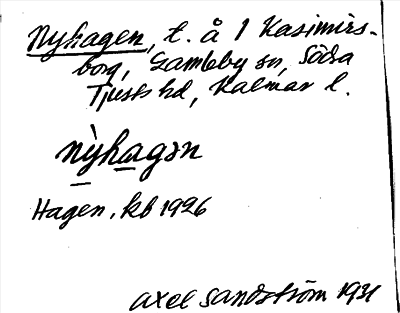 Nyhagen, t. å 1 Kasimirs-
borg, Gamleby sn, Södra
Tjusts hd, Kalmar l.
nỳhagən
Hagen, kb 1926
Axel Sandström 1931